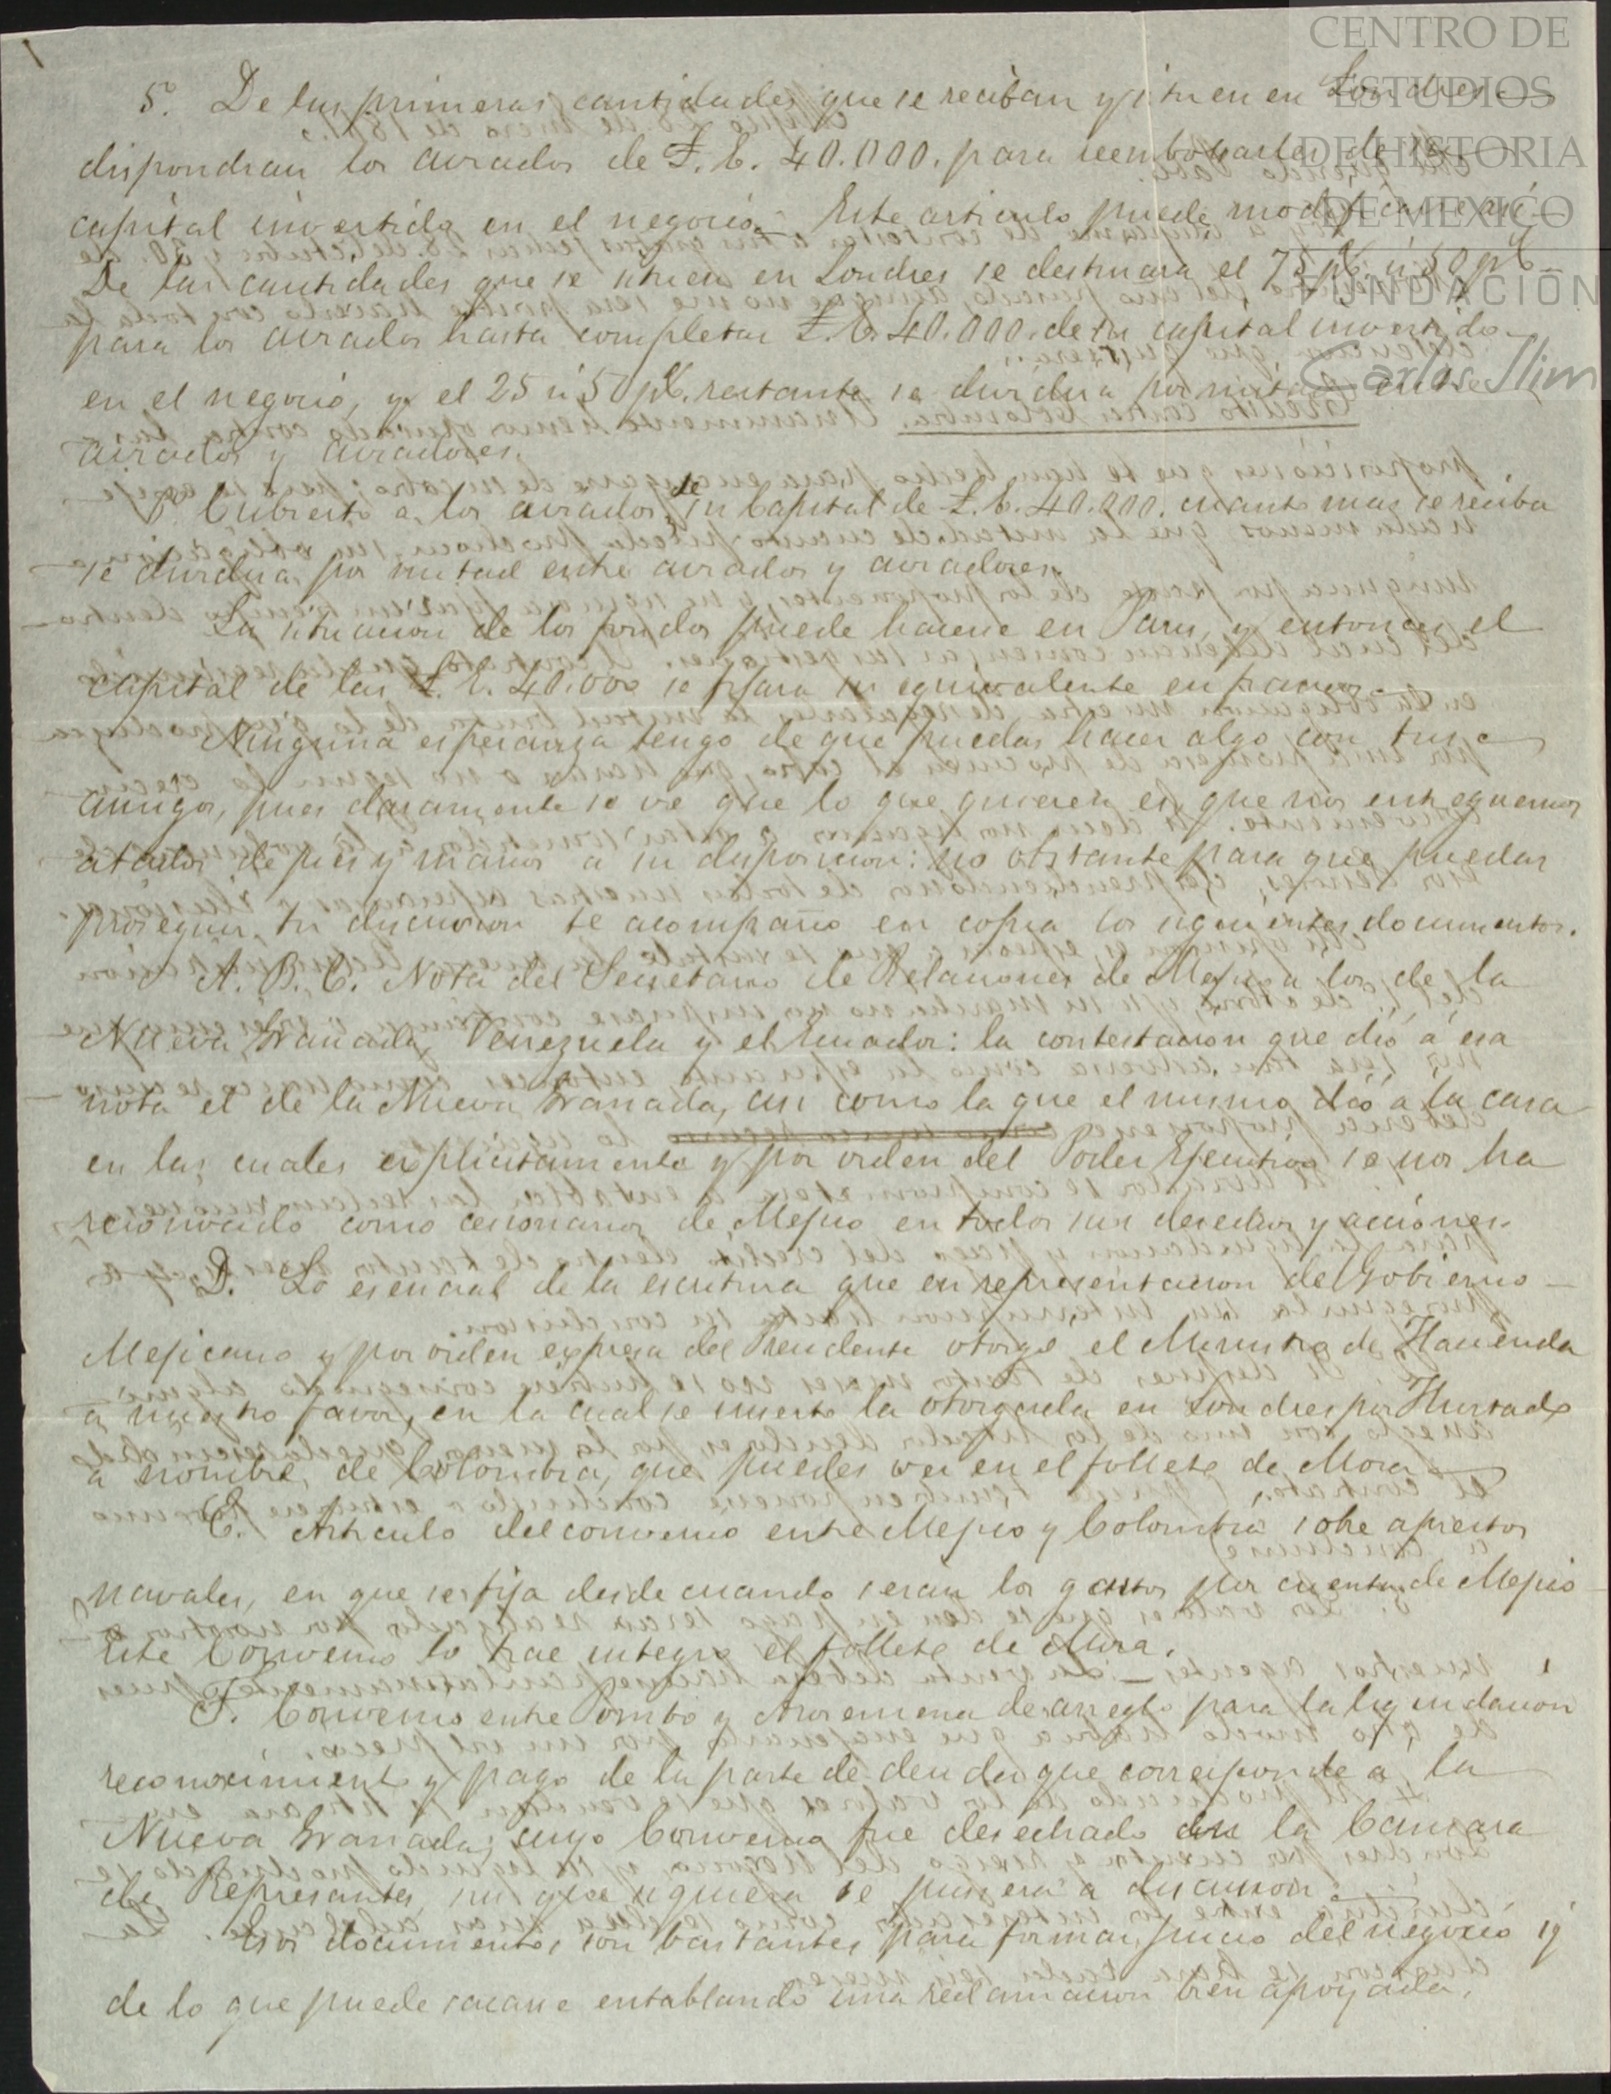 CENTRO DE
ESTUDIOS
DE HISTORIA
DE MEXICO
FUNDACIÓN
Carlos Slim
5º. De las primeras cantidades que se reciban y situen en Londres
dispondran los aviados de £. E. 40.000. para reembolsarlos de su
capital invertido en el negocio. Este articulo puede modificarse asi
De las cantidades que se situen en Londres se destinará el 75 p% ú 50 p%
para los aviados hasta completar £. E. 40.000. de su capital invertido
en el negocio, y el 25 ú 50 p% restante se dividira por mitad entre
aviados y aviadores.
Cubierto a los aviados de su Capital de £. E. 40.000. cuanto mas se reciba
se dividira por mitad entre aviados y aviadores.
La situacion de los fondos puede hacerse en Paris, y entonces el
capital de las £. E. 40.000 se fijara su equivalente en francos.
Ninguna esperanza tengo de que puedas hacer algo con tus
amigos, pues claramente se ve que lo que quieren es que nos entreguemos
atados de pies y manos a su disposicion: no obstante para que puedas
proseguir tu discusion te acompaño en copia los siguientes documentos.
A. B. C. Nota del Secretario de Relaciones de Mejico a los de la
Nueva Granada, Venezuela y el Ecuador: la contestacion que dió á esa
nota el de la Nueva Granada, asi como la que el mismo dió a la casa
en las cuales explicitamente y por orden del Poder Ejecutivo se nos ha
reconocido como cesionarios de Mejico en todos sus derechos y acciones.
D. Lo esencial de la escritura que en representacion del Gobierno
Mejicano y por orden expresa del Presidente otorgó el Ministro de Hacienda
á nuestro favor, en la cual se inserta la otorgada en Londres por Hurtado
a nombre de Colombia, que puedes ver en el folleto de Mora
E. Articulo del convenio entre Mejico y Colombia sobre aprestos
navales, en que se fija desde cuando seran los gastos por cuenta de Mejico
Este Convenio lo trae integro el folleto de Mora.
F. Convenio entre Pombo y Aroremena de arreglo para la liquidacion
reconocimiento y pago de la parte de deuda que corresponde a la
Nueva Granada; cuyo Convenio fue desechado en la Camara
de Represantes, sin que siquiera se pusiera a discusion.
Esos documentos son bastantes para formar juicio del negocio y
de lo que puede sacarse entablando una reclamacion bien apoyada,